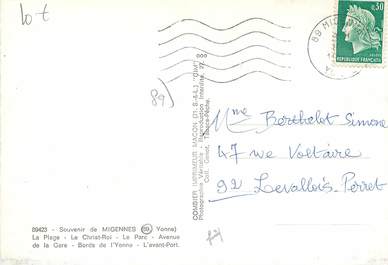 lot
0,30
REPUBLIQUE FRANÇAISE
89 MIGENNES
89)
COMBIER IMPRIMEUR MACON (21 S.-&-L.) "CIM"
Photographie Véritable - Reproduction Interdite.
Coll. Tabacs-Pêche.
Mme Berthelot Simone
47 rue Voltaire
92 Levallois-Perret
89423 - Souvenir de MIGENNES (89, Yonne)
La Plage - Le Christ-Roi - Le Parc - Avenue
de la Gare - Bords de l'Yonne - L'avant-Port.